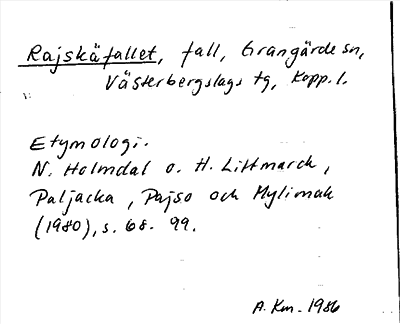 Rajskäfallet, fall, Grangärde sn,
Västerbergslags tg, Kopp. l.
Etymologi.
N. Holmdal o. H. Littmarck,
Paljacka, Pajso och Mylimak
(1980), s. 68. 99.
A. Km. 1986